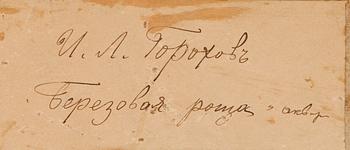 И. Л. Гороховъ
Березовая роща " аквр